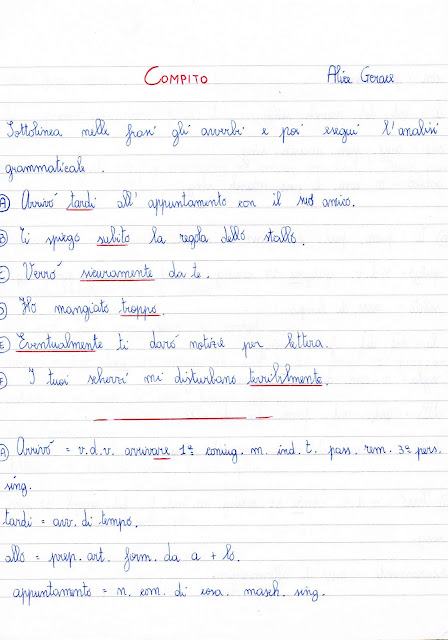 COMPITO Alice Gerace
Sottolinea nelle frasi gli avverbi e poi esegui l'analisi
grammaticale.
A) Arrivò tardi all'appuntamento con il suo amico.
B) Ti spiego subito la regola dello stallo.
C) Verrò sicuramente da te.
D) Ho mangiato troppo.
E) Eventualmente ti darò notizie per lettera.
F) I tuoi scherzi mi disturbano terribilmente.
A) Arrivò = v.d.v. arrivare 1ª coniug. m. ind. t. pass. rem. 3ª pers.
sing.
tardi = avv. di tempo.
allo = prep. art. form. da a + lo.
appuntamento = n. com. di cosa. masch. sing.